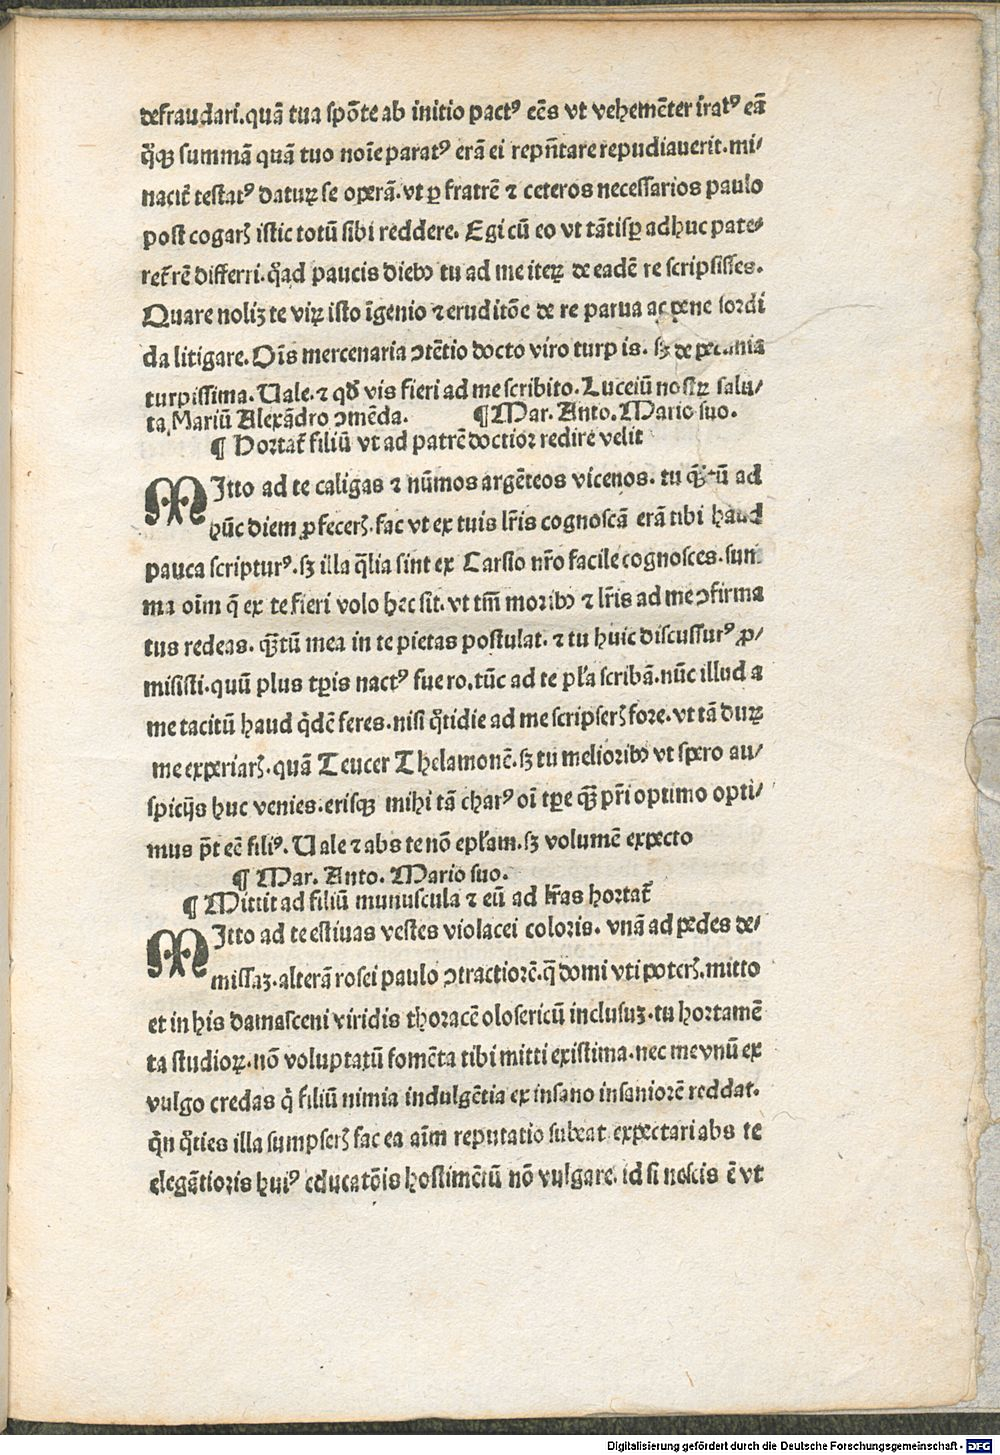 defraudari.quā tua spōte ab initio pactꝰ eēs vt vehemēter iratꝰ eā
qͥꝙ summā quā tuo noīe paratꝰ erā ei repn̄tare repudiauerit.mi⸗
nacit̄ testatꝰ daturꝝ se operā.vt ꝑ fratrē ⁊ ceteros necessarios paulo
post cogarꝭ istic totū sibi reddere. Egi cū eo vt tātisꝑ adhuc pate⸗
ret̄rē differri.qͦad paucis diebꝰ tu ad me iteꝝ de eadē re scripsisses.
Quare noliꝫ te viꝝ isto īgenio ⁊ eruditōe de re parua ac pene sordi
da litigare. Oīs mercenaria ↄtētio docto viro turp is. sꝫ de pecunia
turpissima. Uale. ⁊ qđ vis fieri ad me scribito. Luceiū nostꝝ salu⸗
ta Mariū Alexādro ↄmēda. ¶ Mar. Anto. Mario suo.
¶ Hortat̄ filiū vt ad patrē doctior redire velit
MItto ad te caligas ⁊ nūmos argēteos vicenos. tu qꝫ̄tū ad
hūc diem ꝓfecerꝭ.fac vt ex tuis lr̄is cognoscā erā tibi haud
pauca scripturꝰ.sꝫ illa q̄lia sint ex Carsio nr̄o facile cognosces.sum
ma oīm q̄ ex te fieri volo hec sit. vt tm̄ moribꝰ ⁊ lr̄is ad me ↄfirma
tus redeas. qꝫ̄tū mea in te pietas postulat. ⁊ tu huic discussurꝰ ꝓ⸗
misisti.quū plus tꝑis nactꝰ fuero.tūc ad te pl̄a scribā.nūc illud a
me tacitū haud qͥdē feres.nisi qͦtidie ad me scripserꝭ fore.vt tā duꝝ
me experiarꝭ.quā Teucer Thelamonē.sꝫ tu melioribꝰ vt spero au⸗
spicijs huc venies.erisqꝫ mihi tā charꝰ oī tꝑe qꝫ̄ pr̄i optimo opti⸗
mus pt̄ eē filiꝰ. Uale ⁊ abs te nō epl̄am.sꝫ volumē expecto
¶ Mar. Anto. Mario suo.
¶ Mittit ad filiū munuscula ⁊ eū ad lr̄as hortat̄
MItto ad te estiuas vestes violacei coloris. vnā ad pedes de⸗
missaꝫ.alterā rosei paulo ↄtractiorē.q̄ domi vti poterꝭ.mitto
et in his damasceni viridis thoracē olosericū inclusuꝫ.tu hortamē
ta studioꝝ.nō voluptatū fomēta tibi mitti existima.nec me vnū ex
vulgo credas qͥ filiū nimia indulgētia ex insano insaniorē reddat.
qͥn qͦties illa sumpserꝭ fac ea aīm reputatio subeat expectari abs te
elegātioris huiꝰ educatōis hostimētū nō vulgare. id si nescis ē vt
Digitalisierung gefördert durch die Deutsche Forschungsgemeinschaft - DFG